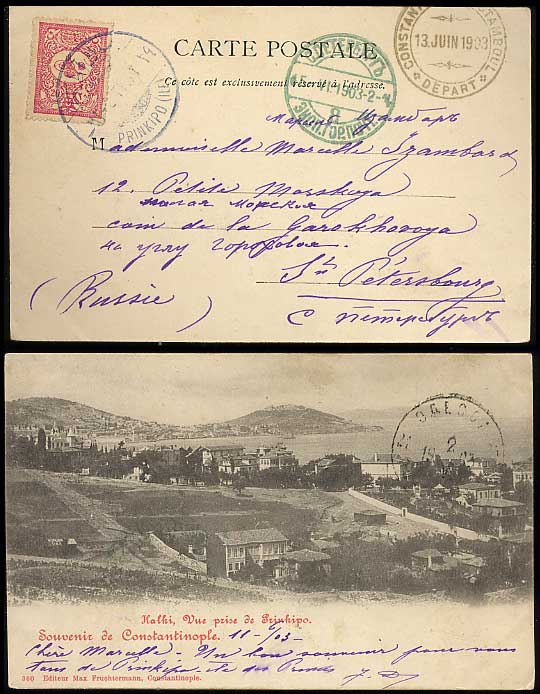 CARTE POSTALE
Ce côté est exclusivement réservé à l'adresse.
PRINKIPO
13 JUIN 1903
DÉPART
1903-2-
Mademoiselle Marcelle Izambard
12. Petite Morskaya
малая морская
coin de la Garokhovaya
на углу гороховая.
St Pétersbourg
(Russie)
С Петербургъ
ОДЕССА
2
Halki, Vue prise de Prinkipo.
Souvenir de Constantinople. 11-6/03-
Chère Marcelle - Un bon souvenir pour vous
de Prinkipo, île des Princes
360 Editeur Max Fruchtermann, Constantinople.